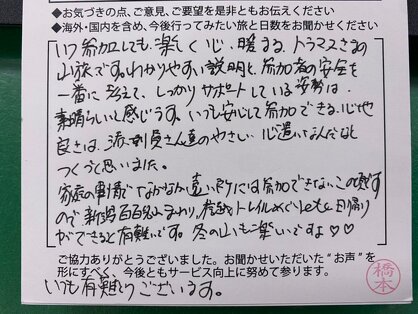 ◆お気づきの点、ご意見、ご要望を是非ともお伝えください
◆海外・国内を含め、今後行ってみたい旅と日数をお聞かせください
いつ参加しても、楽しく心暖まる、トラマスさまの
山旅です。わかりやすい説明と、参加者の安全を
一番に考えて、しっかりサポートしている姿勢は
素晴らしいと感じます。いつも安心して参加できる心地
良さは、派遣員さん達のやさしい心遣いなんだなと
つくづく思いました。
家庭の事情でなかなか遠い所には参加できないこの頃です
ので新潟百名山まわり、トレイルめぐりetc 日帰り
ができると有難いです。冬の山も楽しいですよ♡♡
ご協力ありがとうございました。お聞かせいただいた“お声”を
形にすべく、今後ともサービス向上に努めて参ります。
いつも有難うございます。
橋本